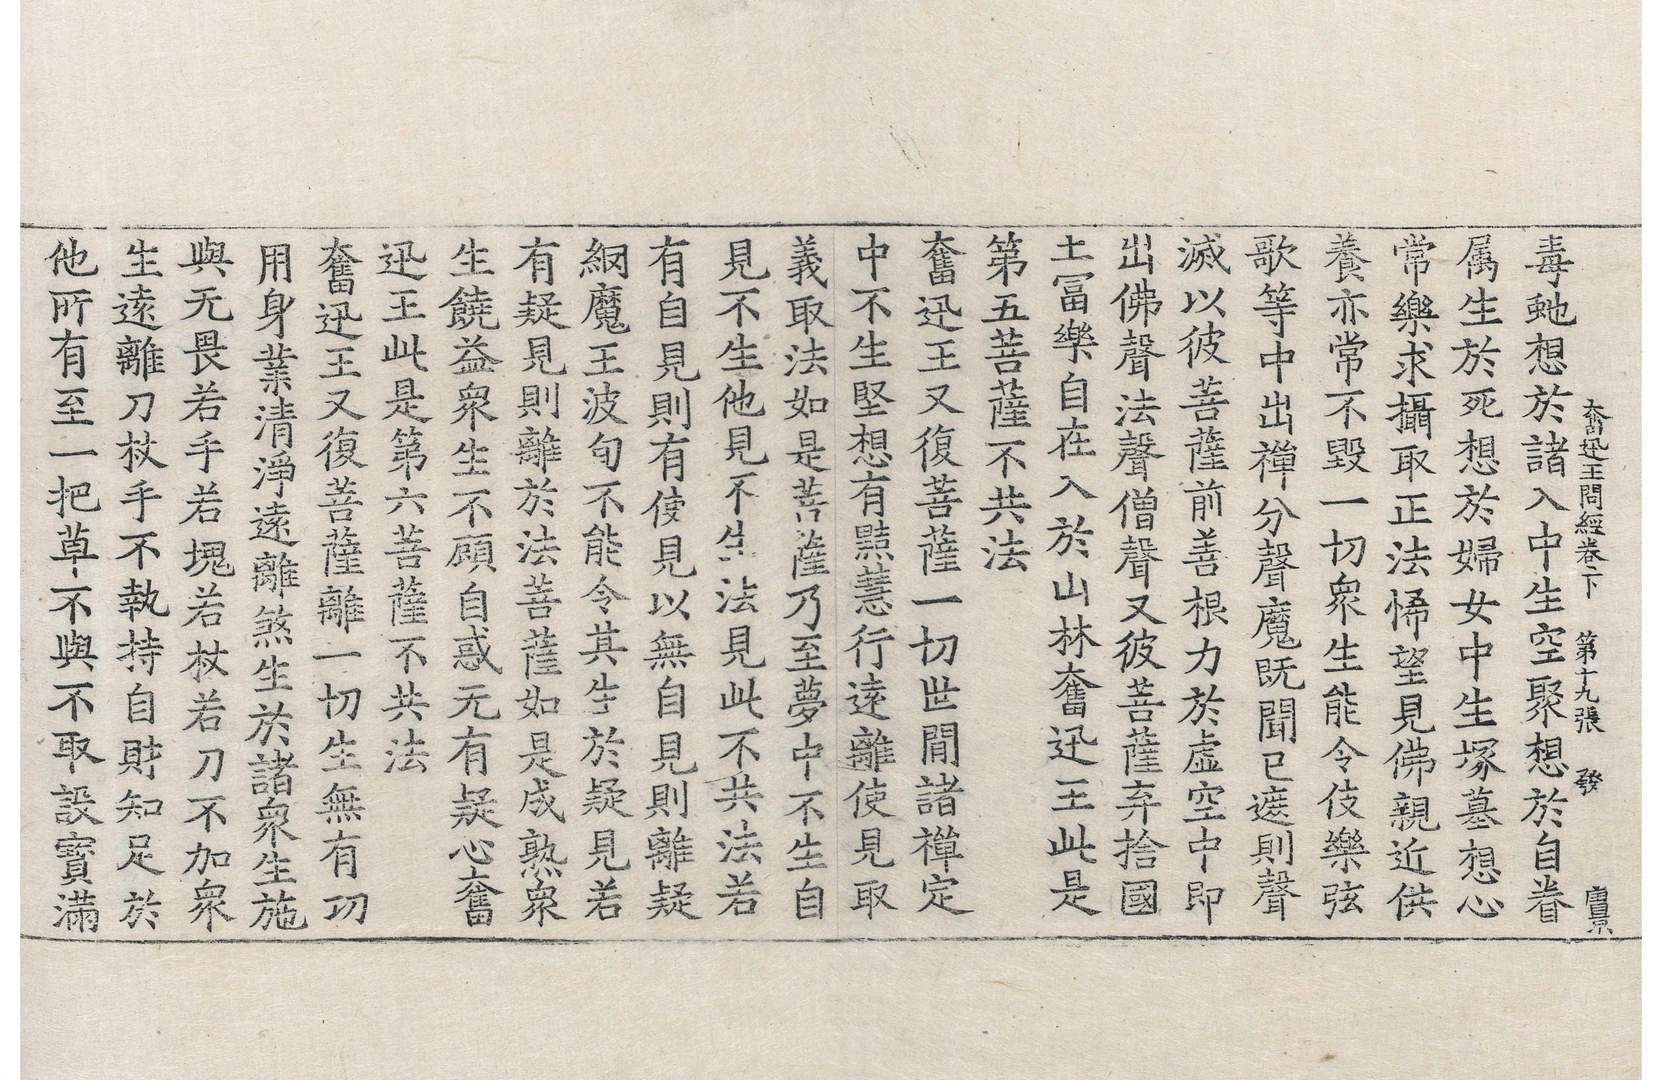 奮迅王問經卷下　第十九張　發
毒虵想於諸入中生空聚想於自眷
属生於死想於婦女中生塚墓想心
常樂求攝取正法悕望見佛親近供
養亦常不毀一切衆生能令伎樂弦
歌等中出禪分聲魔既聞已遮則聲
滅以彼菩薩前善根力於虛空中即
出佛聲法聲僧聲又彼菩薩弃捨國
土冨樂自在入於山林奮迅王此是
第五菩薩不共法
奮迅王又復菩薩一切世間諸禪定
中不生堅想有黠慧行遠離使見取
義取法如是菩薩乃至夢中不生自
見不生他見不生法見此不共法若
有自見則有使見以無自見則離疑
網魔王波旬不能令其生於疑見若
有疑見則離於法菩薩如是成熟衆
生饒益衆生不顧自惑无有疑心奮
迅王此是第六菩薩不共法
奮迅王又復菩薩離一切生無有切
用身業清淨遠離煞生於諸衆生施
與无畏若手若塊若杖若刀不加衆
生遠離刀杖手不執持自財知足於
他所有至一把草不與不取設寶滿